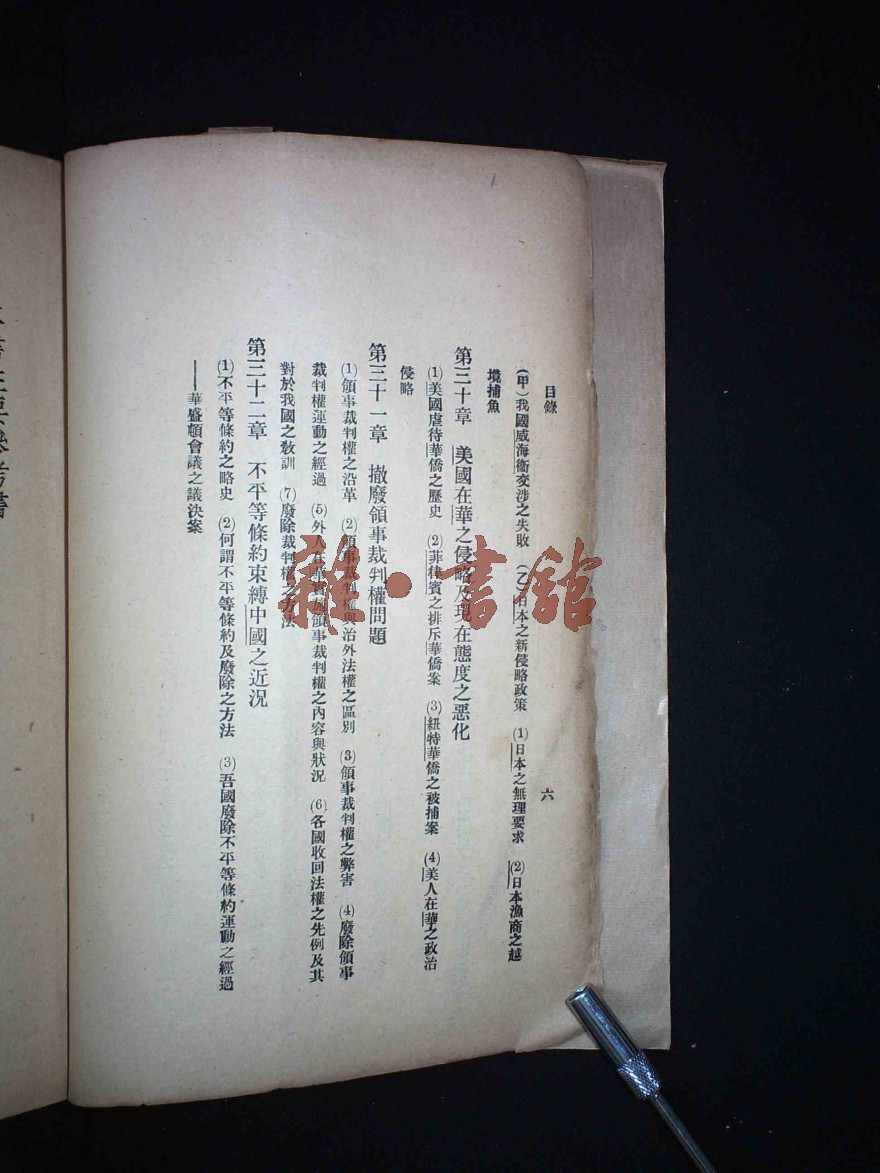 目錄
六
(甲)我國威海衞交涉之失敗 (乙)日本之新侵略政策 (1)日本之無理要求 (2)日本漁商之越
境捕魚
第三十章 美國在華之侵略及現在態度之惡化
(1)美國虐待華僑之歷史 (2)菲律賓之排斥華僑案 (3)紐特華僑之被捕案 (4)美人在華之政治
侵略
第三十一章 撤廢領事裁判權問題
(1)領事裁判權之沿革 (2)領事裁判權與治外法權之區別 (3)領事裁判權之弊害 (4)廢除領事
裁判權運動之經過 (5)外人在華實施領事裁判權之內容與狀況 (6)各國收回法權之先例及其
對於我國之教訓 (7)廢除裁判權之方法
第三十二章 不平等條約束縛中國之近況
(1)不平等條約之略史 (2)何謂不平等條約及廢除之方法 (3)吾國廢除不平等條約運動之經過
——華盛頓會議之議決案
雜·書館